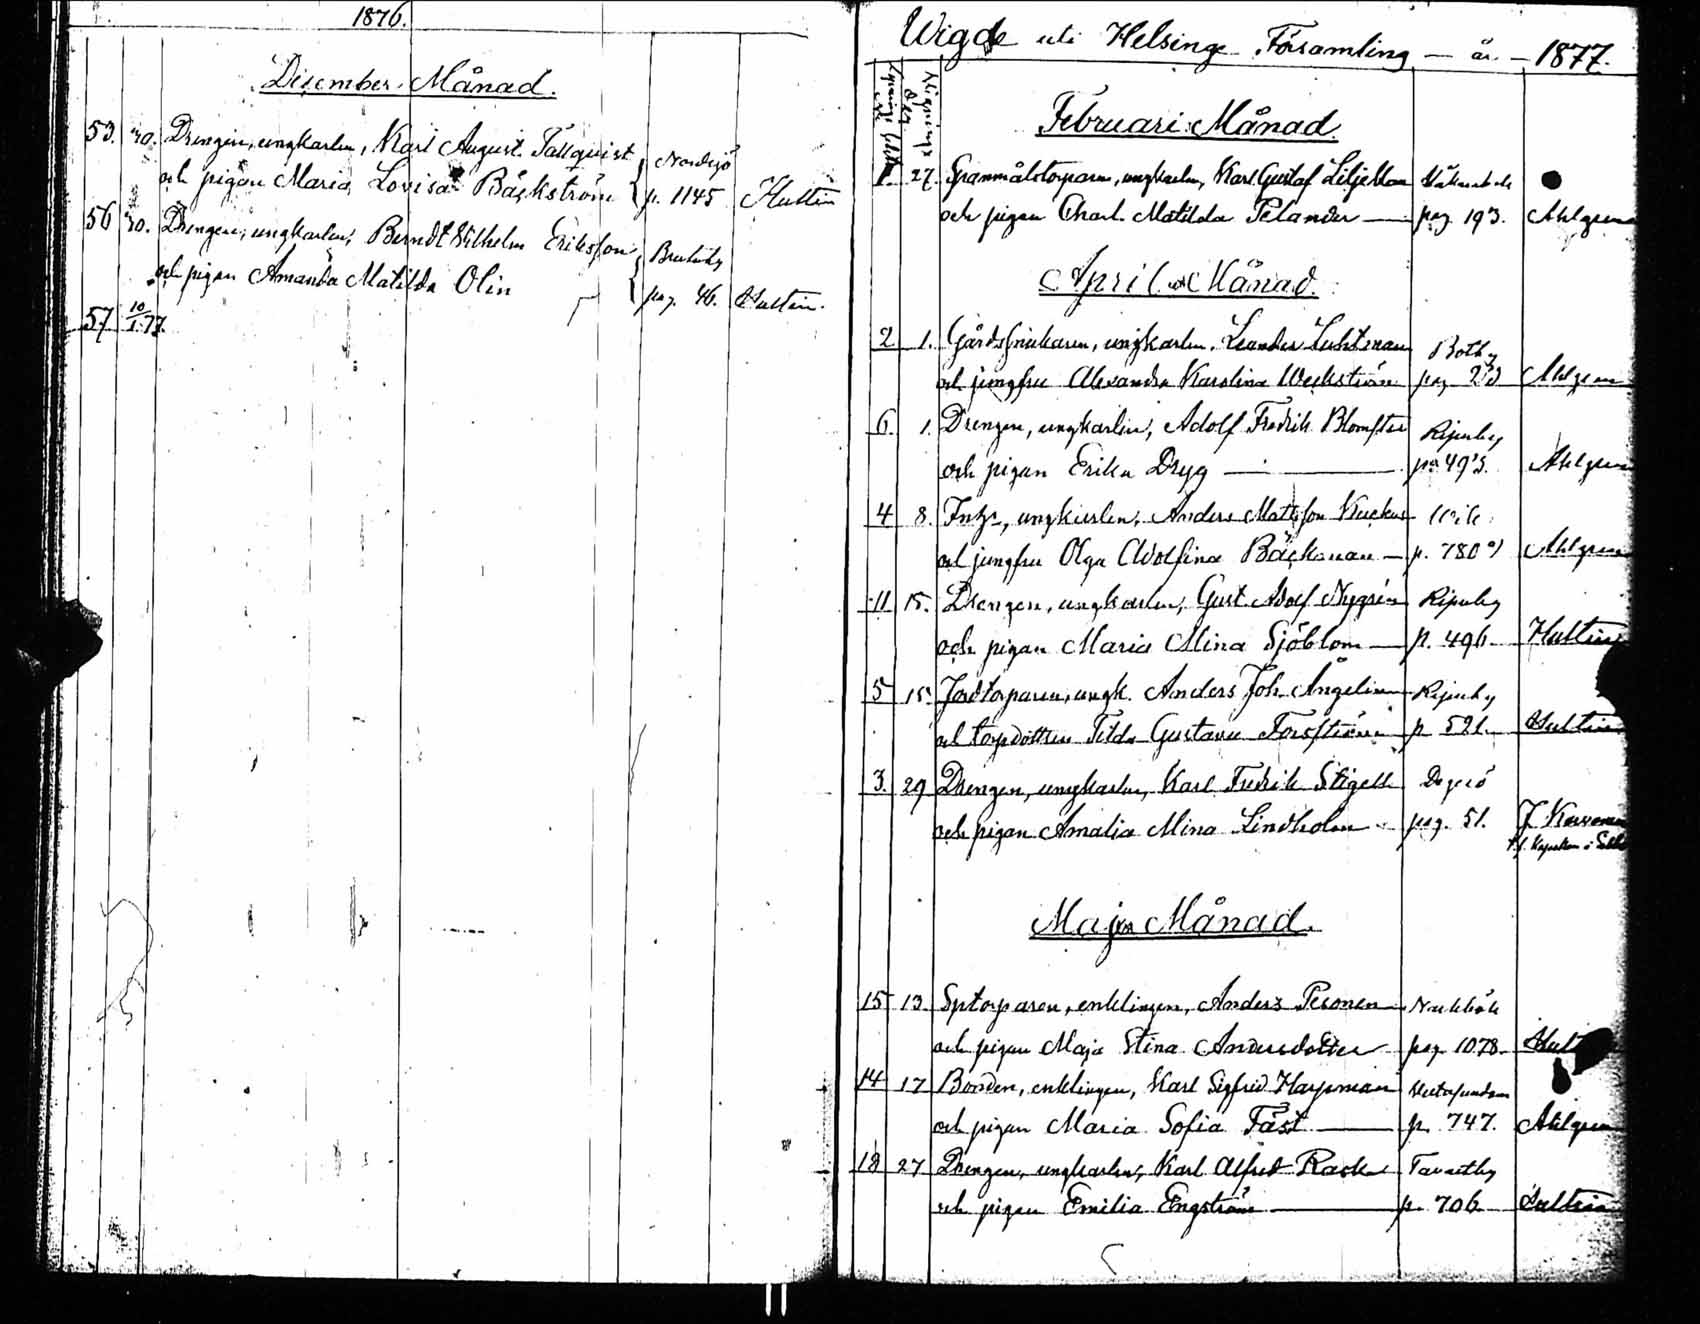 1876.
December Månad.
53. 30. Drengen, ungkarlen, Karl August Tallquist Nordsjö
och pigan Maria Lovisa Bäckström p. 1145 Hultin
56 30. Drengen, ungkarlen, Berndt Wilhelm Eriksson
och pigan Amanda Matilda Olin pag. 46. Hultin.
57 10/1.77.
Wigde uti Helsinge Församling — år — 1877.
Lysnings
Wignings
Februari Månad.
1. 27. Spannmålstorparen, ungkarlen, Karl Gustaf Liljeblom
och pigan Charl. Matilda Pelander — pag. 193. Ahlgren
April Månad.
2 1. ungkarlen, Leander Luhtman Botby
och jungfru Alexandra Karolina Weckström pag. Ahlgren
6. 1. Drengen, ungkarlen, Adolf Fredrik Blomster
och pigan Erika Dryg — Ahlgren
4 8. ungkarlen, Anders Mattsson
och jungfru Olga Adolfina Bäckman — p. 780 Ahlgren
11 15. Drengen, ungkarlen, Gust. Adolf Nygrén
och pigan Maria Mina Sjöblom — p. 496 Hultin
5 15 Jordtorparen, ungk. Anders Joh. Ångelin
och torpdottren Tilda Gustava Forsström p. 521. Hultin
3. 29 Drengen, ungkarlen, Karl Fredrik Stigell Degerö
och pigan Amalia Mina Lindholm pag. 51. J.
Maji Månad.
15 13. Sptorparen, enklingen, Anders Pesonen
och pigan Maja Stina Andersdotter pag. 1078.
14 17 Bonden, enklingen, Karl Sigfrid Harpman
och pigan Maria Sofia Fast — p. 747. Ahlgren
18 27 Drengen, ungkarlen, Karl Alfred Rask Tavastby
och pigan Emilia Engström — p. 706 Hultin